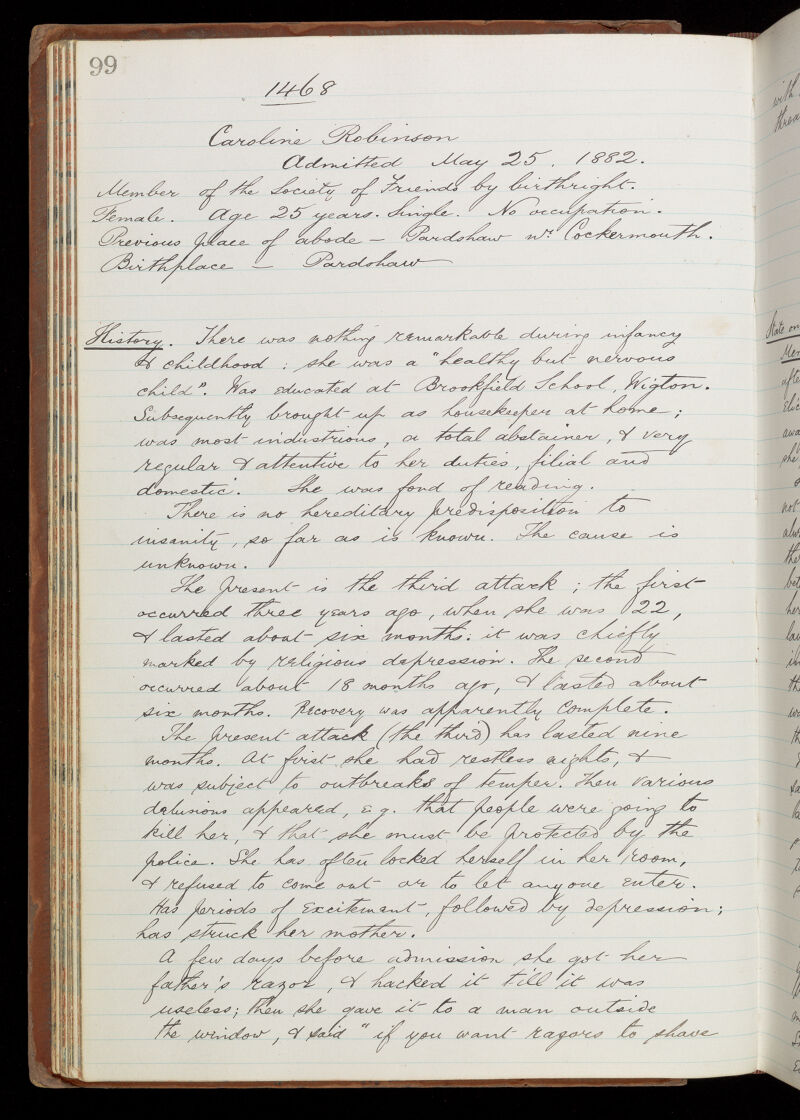 99
1468
Caroline Robinson
Admitted May 25. 1882.
Member of the Society of Friends by birthright.
Female. Age 25 years. Single. No occupation.
Previous place of abode - Pardshaw nr. Cockermouth.
Birthplace - Pardshaw
History. There was nothing remarkable during infancy
& childhood: she was a "healthy but nervous
child". Was educated at Brookfield School, Wigton.
Subsequently brought up as housekeeper at home;
was most industrious, a total abstainer, & very
regular & attentive to her duties, filial and
domestic. She was fond of reading.
There is no hereditary predisposition to
insanity, so far as is known. The cause is
unknown.
The present is the third attack; the first
occurred three years ago, when she was 22,
& lasted about six months: it was chiefly
marked by religious depression. The second
occurred about 18 months ago, & lasted about
six months. Recovery was apparently complete.
The present attack (the third) has lasted nine
months. At first she had restless nights, &
was subject to outbreaks of temper. Then various
delusions appeared, e.g. that people were going to
kill her, & that she must be protected by the
police. She has often locked herself in her room,
& refused to come out or to let anyone enter.
Has periods of excitement, followed by depression;
has struck her mother.
A few days before admission she got her
father's razor, & hacked it till it was
useless; then she gave it to a man outside
the window, & said "if you want razors to shave
with